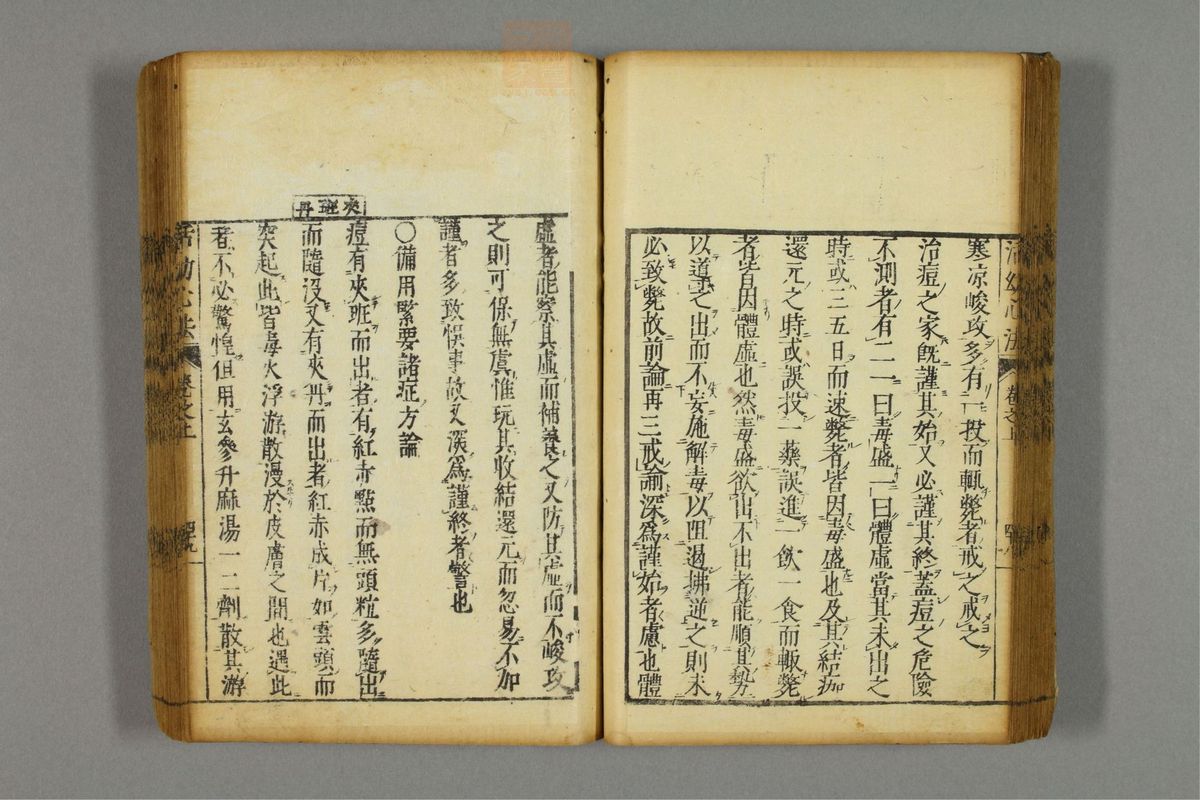 活幼心法 卷之上
寒凉峻攻多有一投而輒斃者戒之戒之
治痘之家既謹其始又必謹其終蓋痘之危險
不測者有二一曰毒盛一曰體虛當其未出之
時或三五日而速斃者皆因毒盛也及其結痂
還元之時或誤投一藥誤進一飲一食而輙斃
者皆因體虛也然毒盛欲出不出者能順其勢
以導之出而不妄施解毒以阻遏拂逆之則未
必致斃故前論再三戒諭深爲謹始者慮也體
虛者能察其虛而補養之又防其虛而不峻攻
之則可保無虞惟玩其收結還元而忽易不加
謹者多致悞事故又深爲謹終者警也
〇備用緊要諸症方論
夾斑丹
痘有夾班而出者有紅赤點而無頭粒多隨出
而隨沒又有夾丹而出者紅赤成片如雲頭而
突起此皆毒火浮游散漫於皮膚之間也遇此
者不必驚惶但用玄參升麻湯一二劑散其游
活幼心法 卷之上